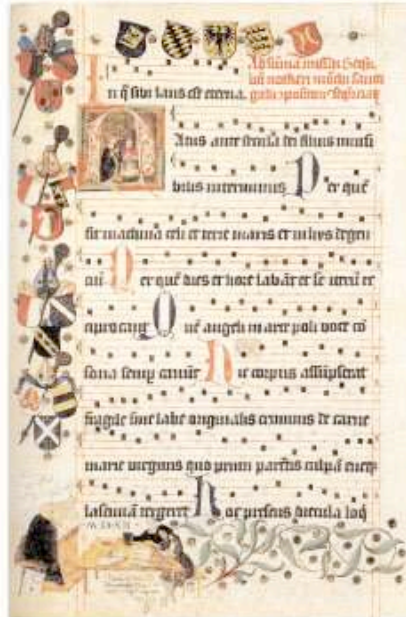 In q̃ sibi laus est eterna.
Natus ante secula dei filius invisi
bilis interminus Per quẽ
fit machina celi et terre maris et in hys degen
ciũ Per quẽ dies et hore labãt et se iterũ re
ciprocant Quẽ angeli in arce poli voce cõ
sona semp canũt Hic corpus assũpserat
fragile sine labe originalis criminis de carne
marie virginis quo primi parẽtis culpã eueq;
lasciuiam tergeret Hoc presens diecula loq̃